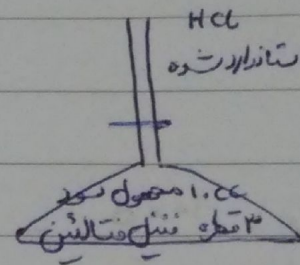 HCl
ستاندارد شده
۱۰ cc محلول سود
۳ قطره فنل فتالئین